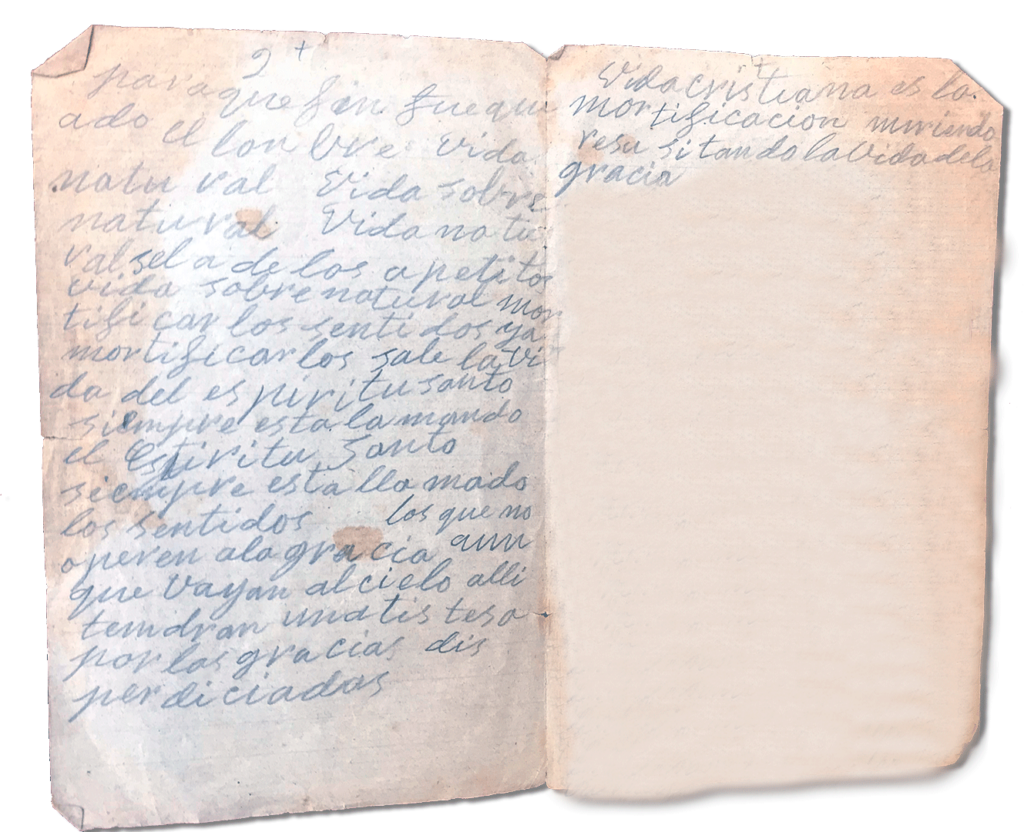 2 +
para que fin fue cri
ado el lon bre vida
natu ral Vida sobre
natural Vida natu
ral sel a de los apetitos
vida sobre natural mor
tificar los sentidos ya
mortificar los sale la vi
da del espiritu santo
siempre esta la mando
el Espiritu Santo
siempre esta lla mado
los sentidos los que no
operen ala gracia aun
que vayan al cielo alli
tendran una tis tesa
por las gracias dis
perdiciadas
+
Vida cristiana es la
mortificacion muriendo
resu si tando la vida dela
gracia